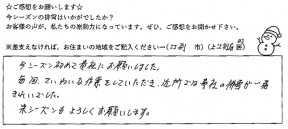 ☆ご感想をお願いします☆
今シーズンの排雪はいかがでしたか?
お客様の声が、私たちの原動力になっています。ぜひ、ご感想をお聞かせ下さい。
※差支えなければ、お住まいの地域をご記入ください→(江別 市)( 区)
今シーズン初めて貴社にお願いしました。
毎回、ていねいな作業をしていただき、近所でも貴社の排雪が一番
きれいでした。
来シーズンもよろしくお願いします。